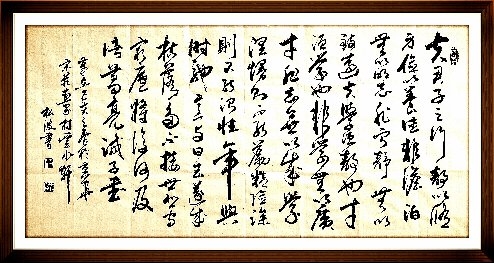 夫君子之行静以修
身儉以養德非澹泊
無以明志非寧靜無以
致遠夫學須靜也才
須學也非學無以廣
才非志無以成學
淫慢則不能勵精險躁
則不能冶性年與
時馳意與日去遂成
枯落多不接世悲守
窮廬將復何及
諸葛亮誡子書